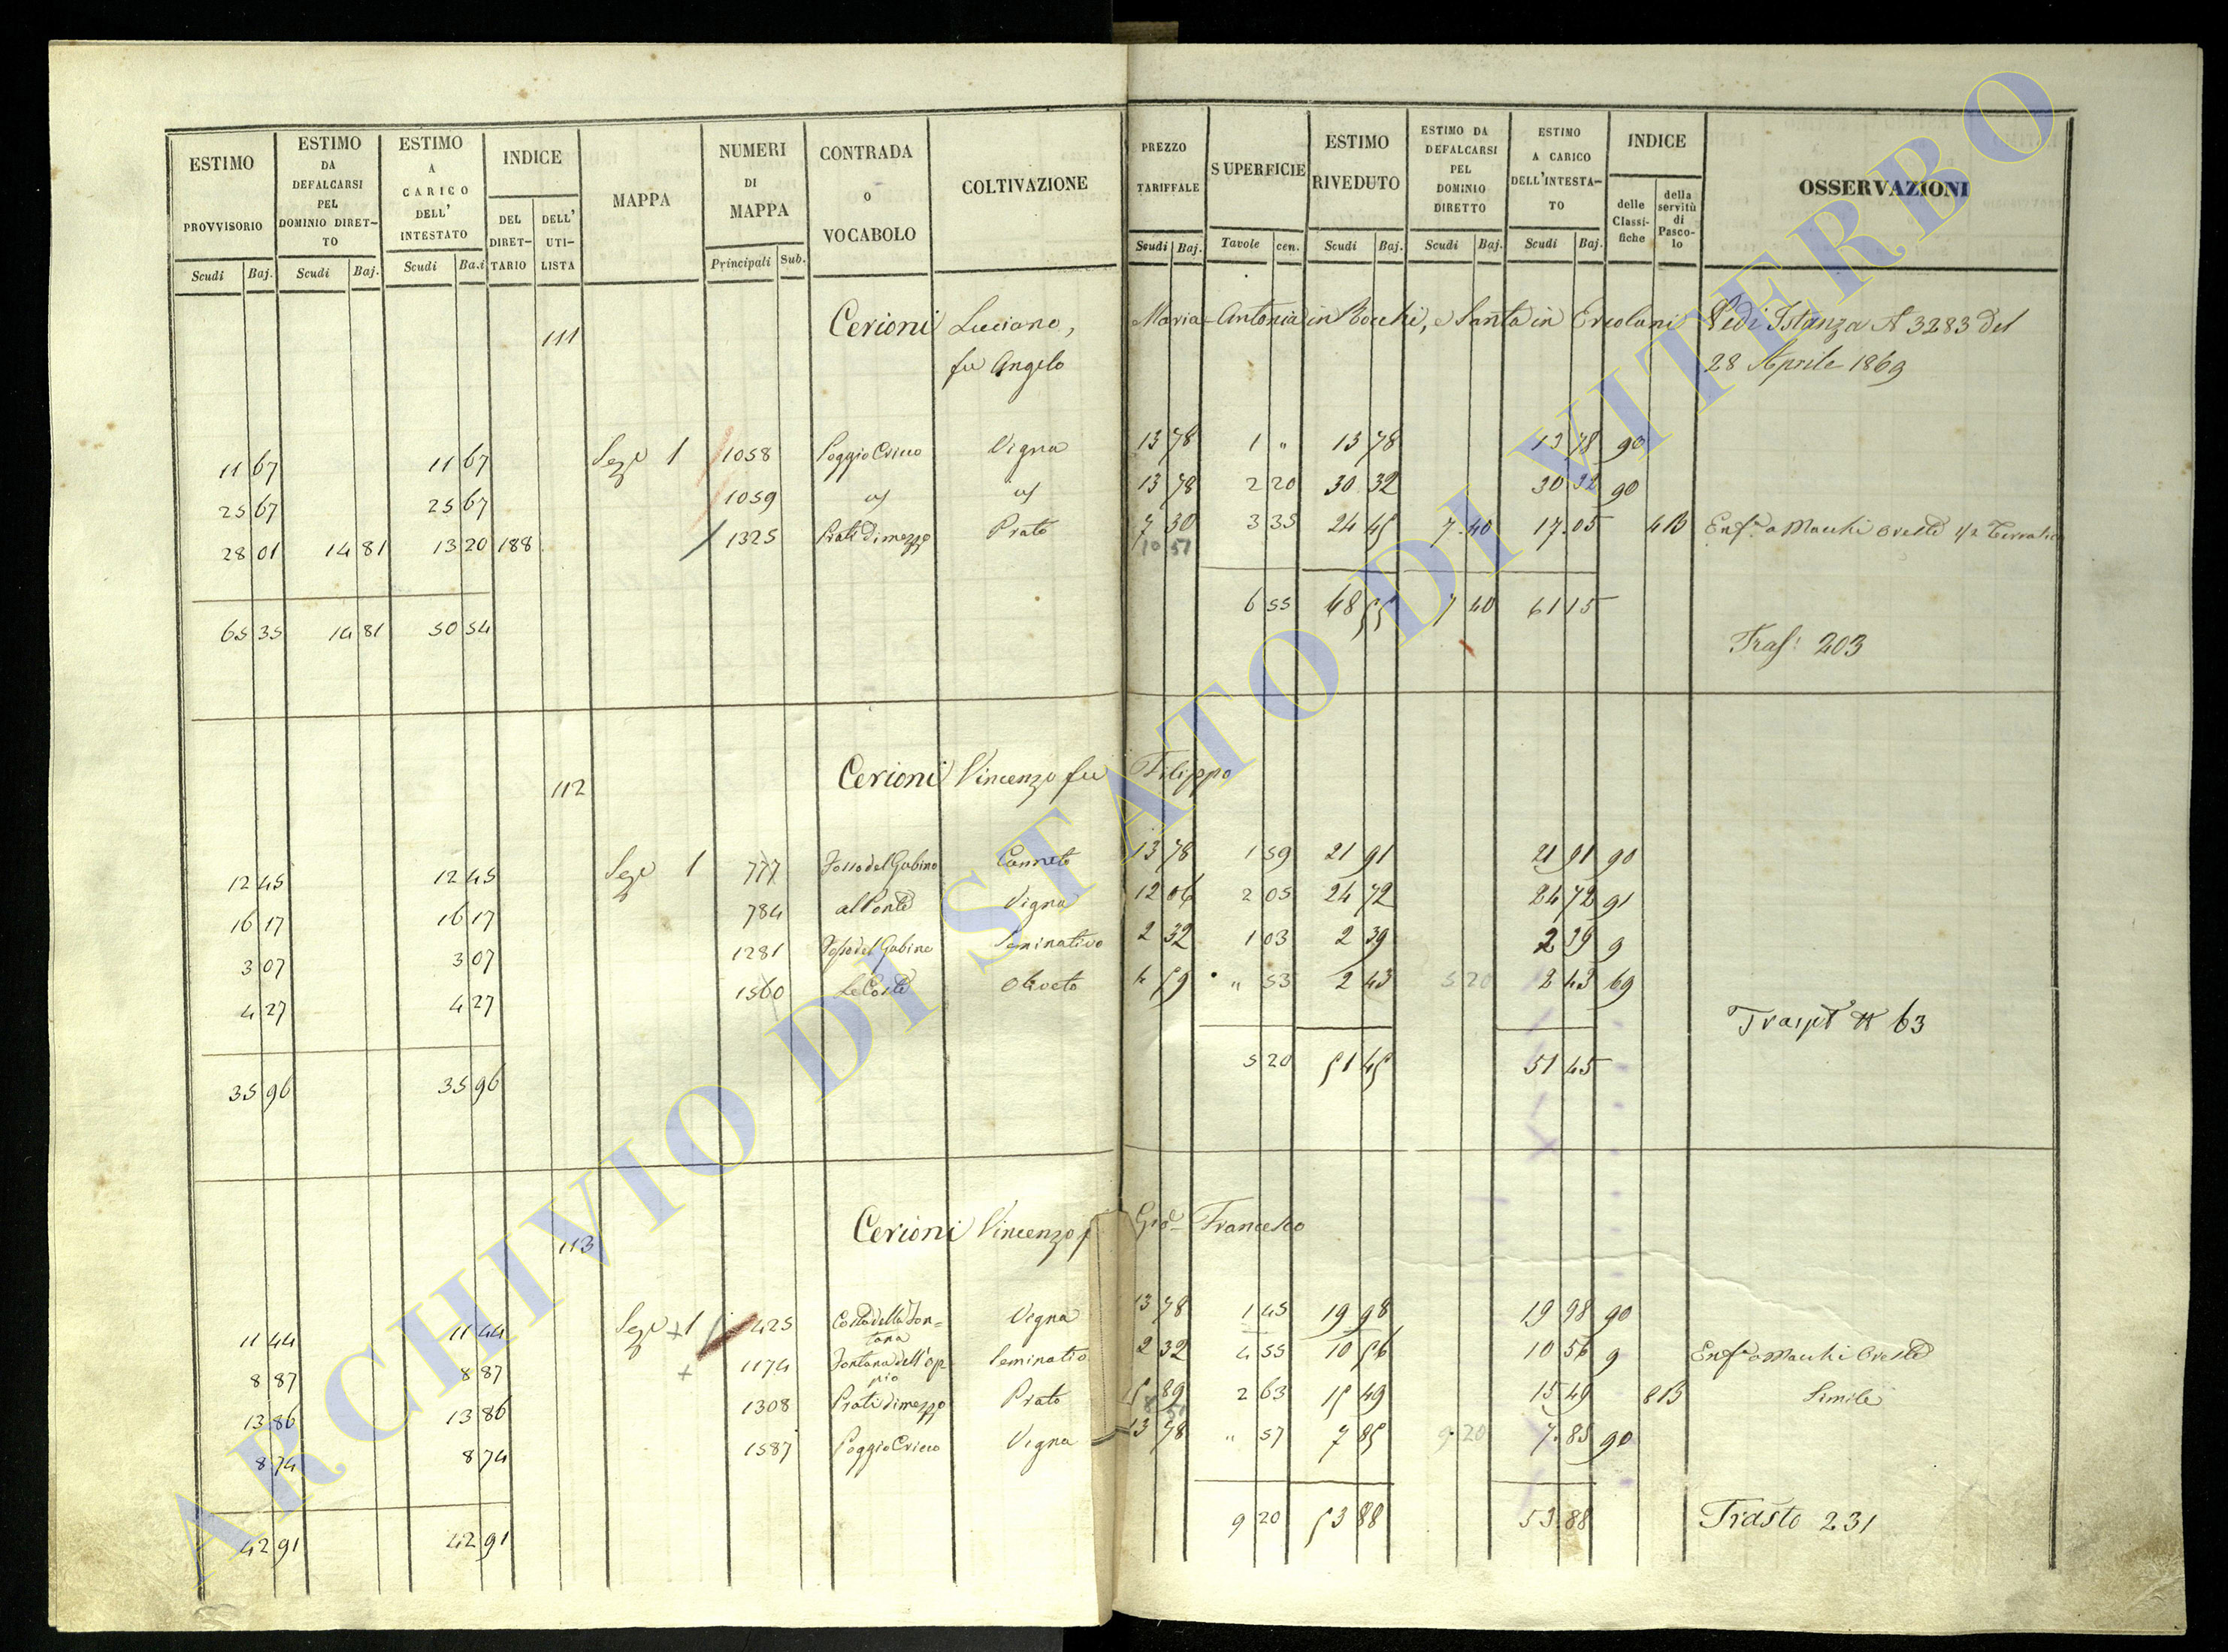 ESTIMO PROVVISORIO Scudi Baj.
ESTIMO DA DEFALCARSI PEL DOMINIO DIRET-TO Scudi Baj.
ESTIMO A CARICO DELL' INTESTATO Scudi Ba.i
INDICE DEL DIRET-TARIO DELL' UTI-LISTA
MAPPA
NUMERI DI MAPPA Principali Sub.
CONTRADA o VOCABOLO
COLTIVAZIONE
PREZZO TARIFFALE Scudi Baj.
SUPERFICIE Tavole cen.
ESTIMO RIVEDUTO Scudi Baj.
ESTIMO DA DEFALCARSI PEL DOMINIO DIRETTO Scudi Baj.
ESTIMO A CARICO DELL'INTESTA-TO Scudi Baj.
INDICE delle Classi-fiche della servitù di Pasco-lo
OSSERVAZIONI
111 Cerioni Luciano, Maria Antonia in Bocchi, e Santa in Ercolani Vedi Istanza N 3283 del
fu Angelo 28 Aprile 1869
11 67 11 67 Sez. 1 1058 Poggio Crico Vigna 13 78 1 " 13 78 13 78 90
25 67 25 67 1059 13 78 2 20 30 32 30 32 90
28 01 14 81 13 20 188 1325 Prati di mezzo Prato 7 30 3 35 24 45 7.40 17.05 4B Enf. a Macchi Oreste 1/2
10 51
65 35 14 81 50 54 6 55 68 55 7 40 61 15
Trasf. 203
112 Cerioni Vincenzo fu Filippo
12 45 12 45 Sez. 1 777 Fosso del Gabino Canneto 13 78 1 59 21 91 21 91 90
16 17 16 17 784 al Ponte Vigna 12 06 2 05 24 72 24 72 91
3 07 3 07 1281 Fosso del Gabino Seminativo 2 32 1 03 2 39 2 39 9
4 27 4 27 1560 Le Coste Oliveto 4 59 " 53 2 43 5 20 2 43 69
Traspt N 63
35 96 35 96 5 20 51 45 51 45
113 Cerioni Vincenzo f Gio Francesco
11 44 11 44 Sez. +1 425 Costa della Fon=tana Vigna 13 78 1 45 19 98 19 98 90
8 87 8 87 + 1174 Fontana dell'oppio Seminativo 2 32 4 55 10 56 10 56 9 Enf. a Macchi Oreste
13 86 13 86 1308 Prati di mezzo Prato 5 89 2 63 15 49 15 49 8B Simile
8 74 8 74 1587 Poggio Crico Vigna 13 78 " 57 7 85 9.20 7.85 90
42 91 42 91 9 20 53 88 53.88 Trasto 231
ARCHIVIO DI STATO DI VITERBO